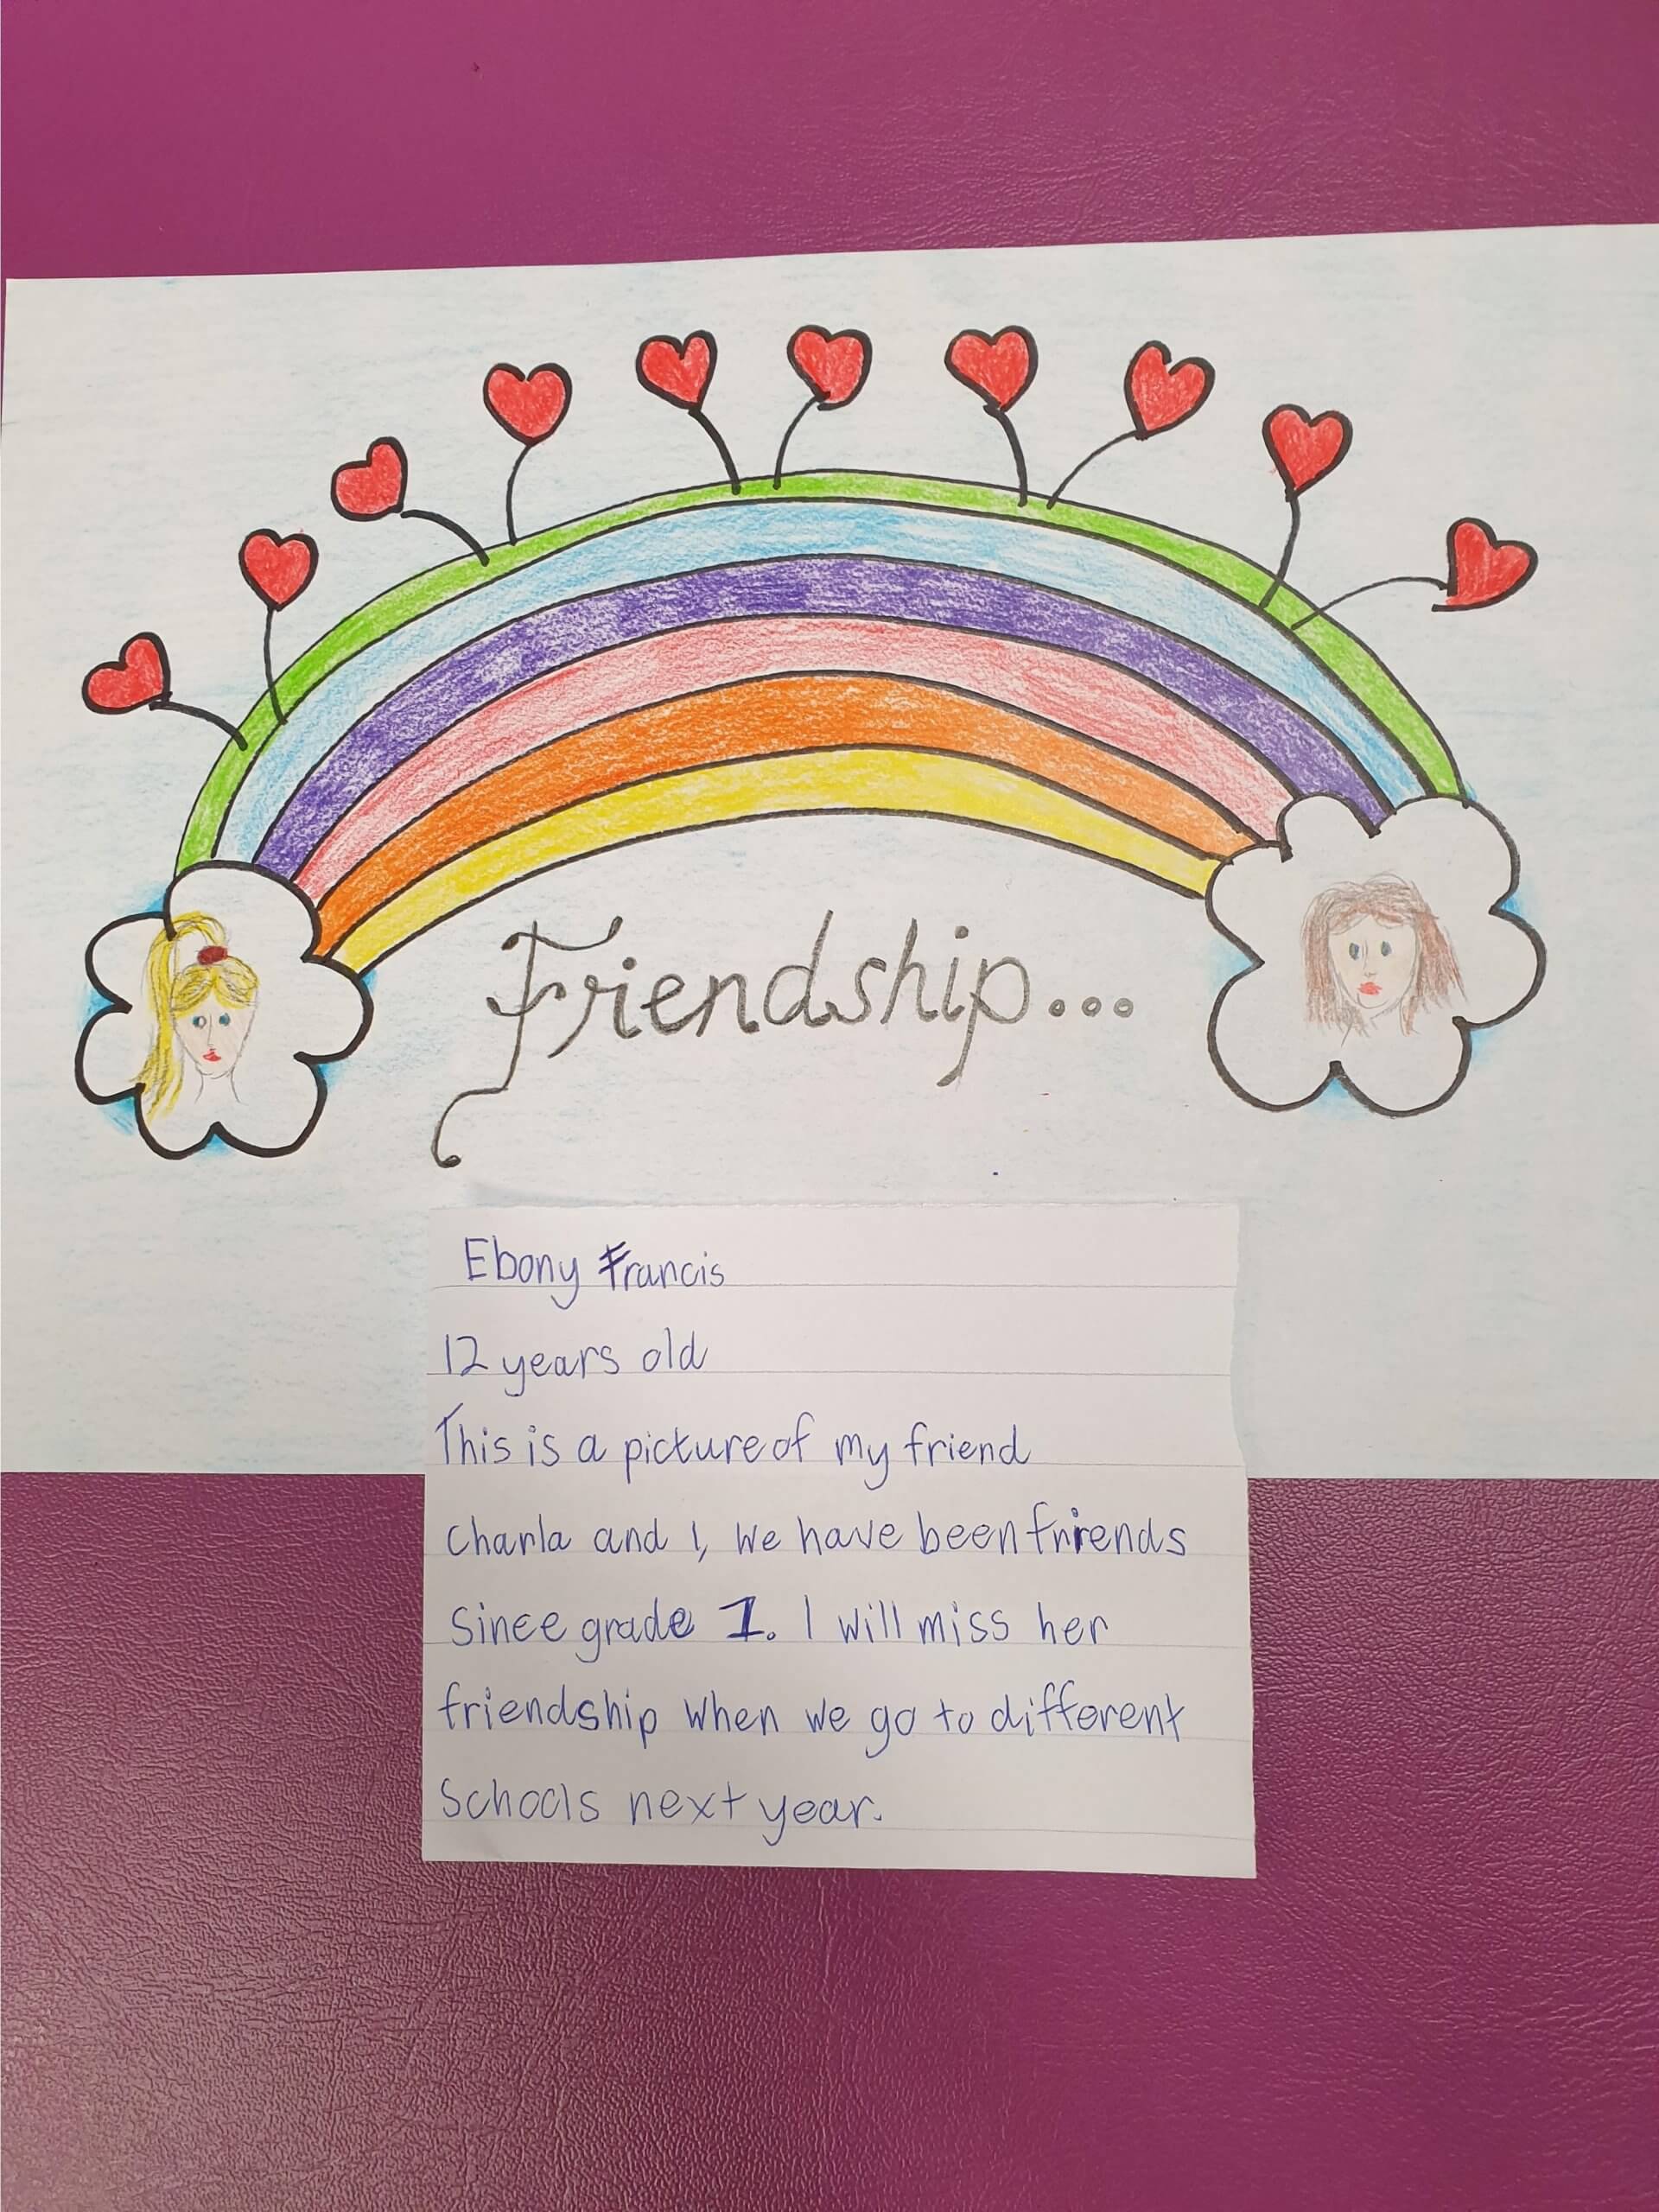 Friendship...
Ebony Francis
12 years old
This is a picture of my friend
Charla and I, We have been friends
Since grade 1. I will miss her
friendship when we go to different
Schools next year.